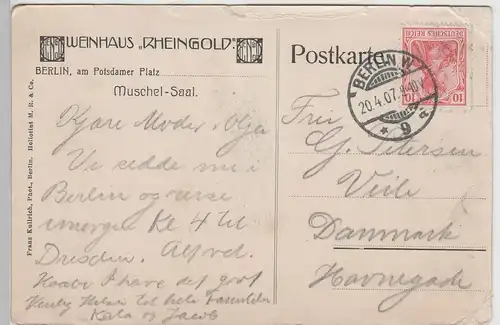 WEINHAUS „RHEINGOLD“
BERLIN, am Potsdamer Platz
Muschel-Saal.
Postkarte
DEUTSCHES REICH
10 10
BERLIN W
20.4.07.
* 9 a
Franz Kullrich, Phot., Berlin. Heliotint M. R. & Co.
Kjære Moder. Olga
Vi sidde nu i
Berlin og reise
imorgen Kl 4 til
Dresden. Alfred.
Haaber I have det godt
Hilsen til hele Familien
Kata og Jacob
Fru
G. Petersen
Veile
Danmark
Havnegade